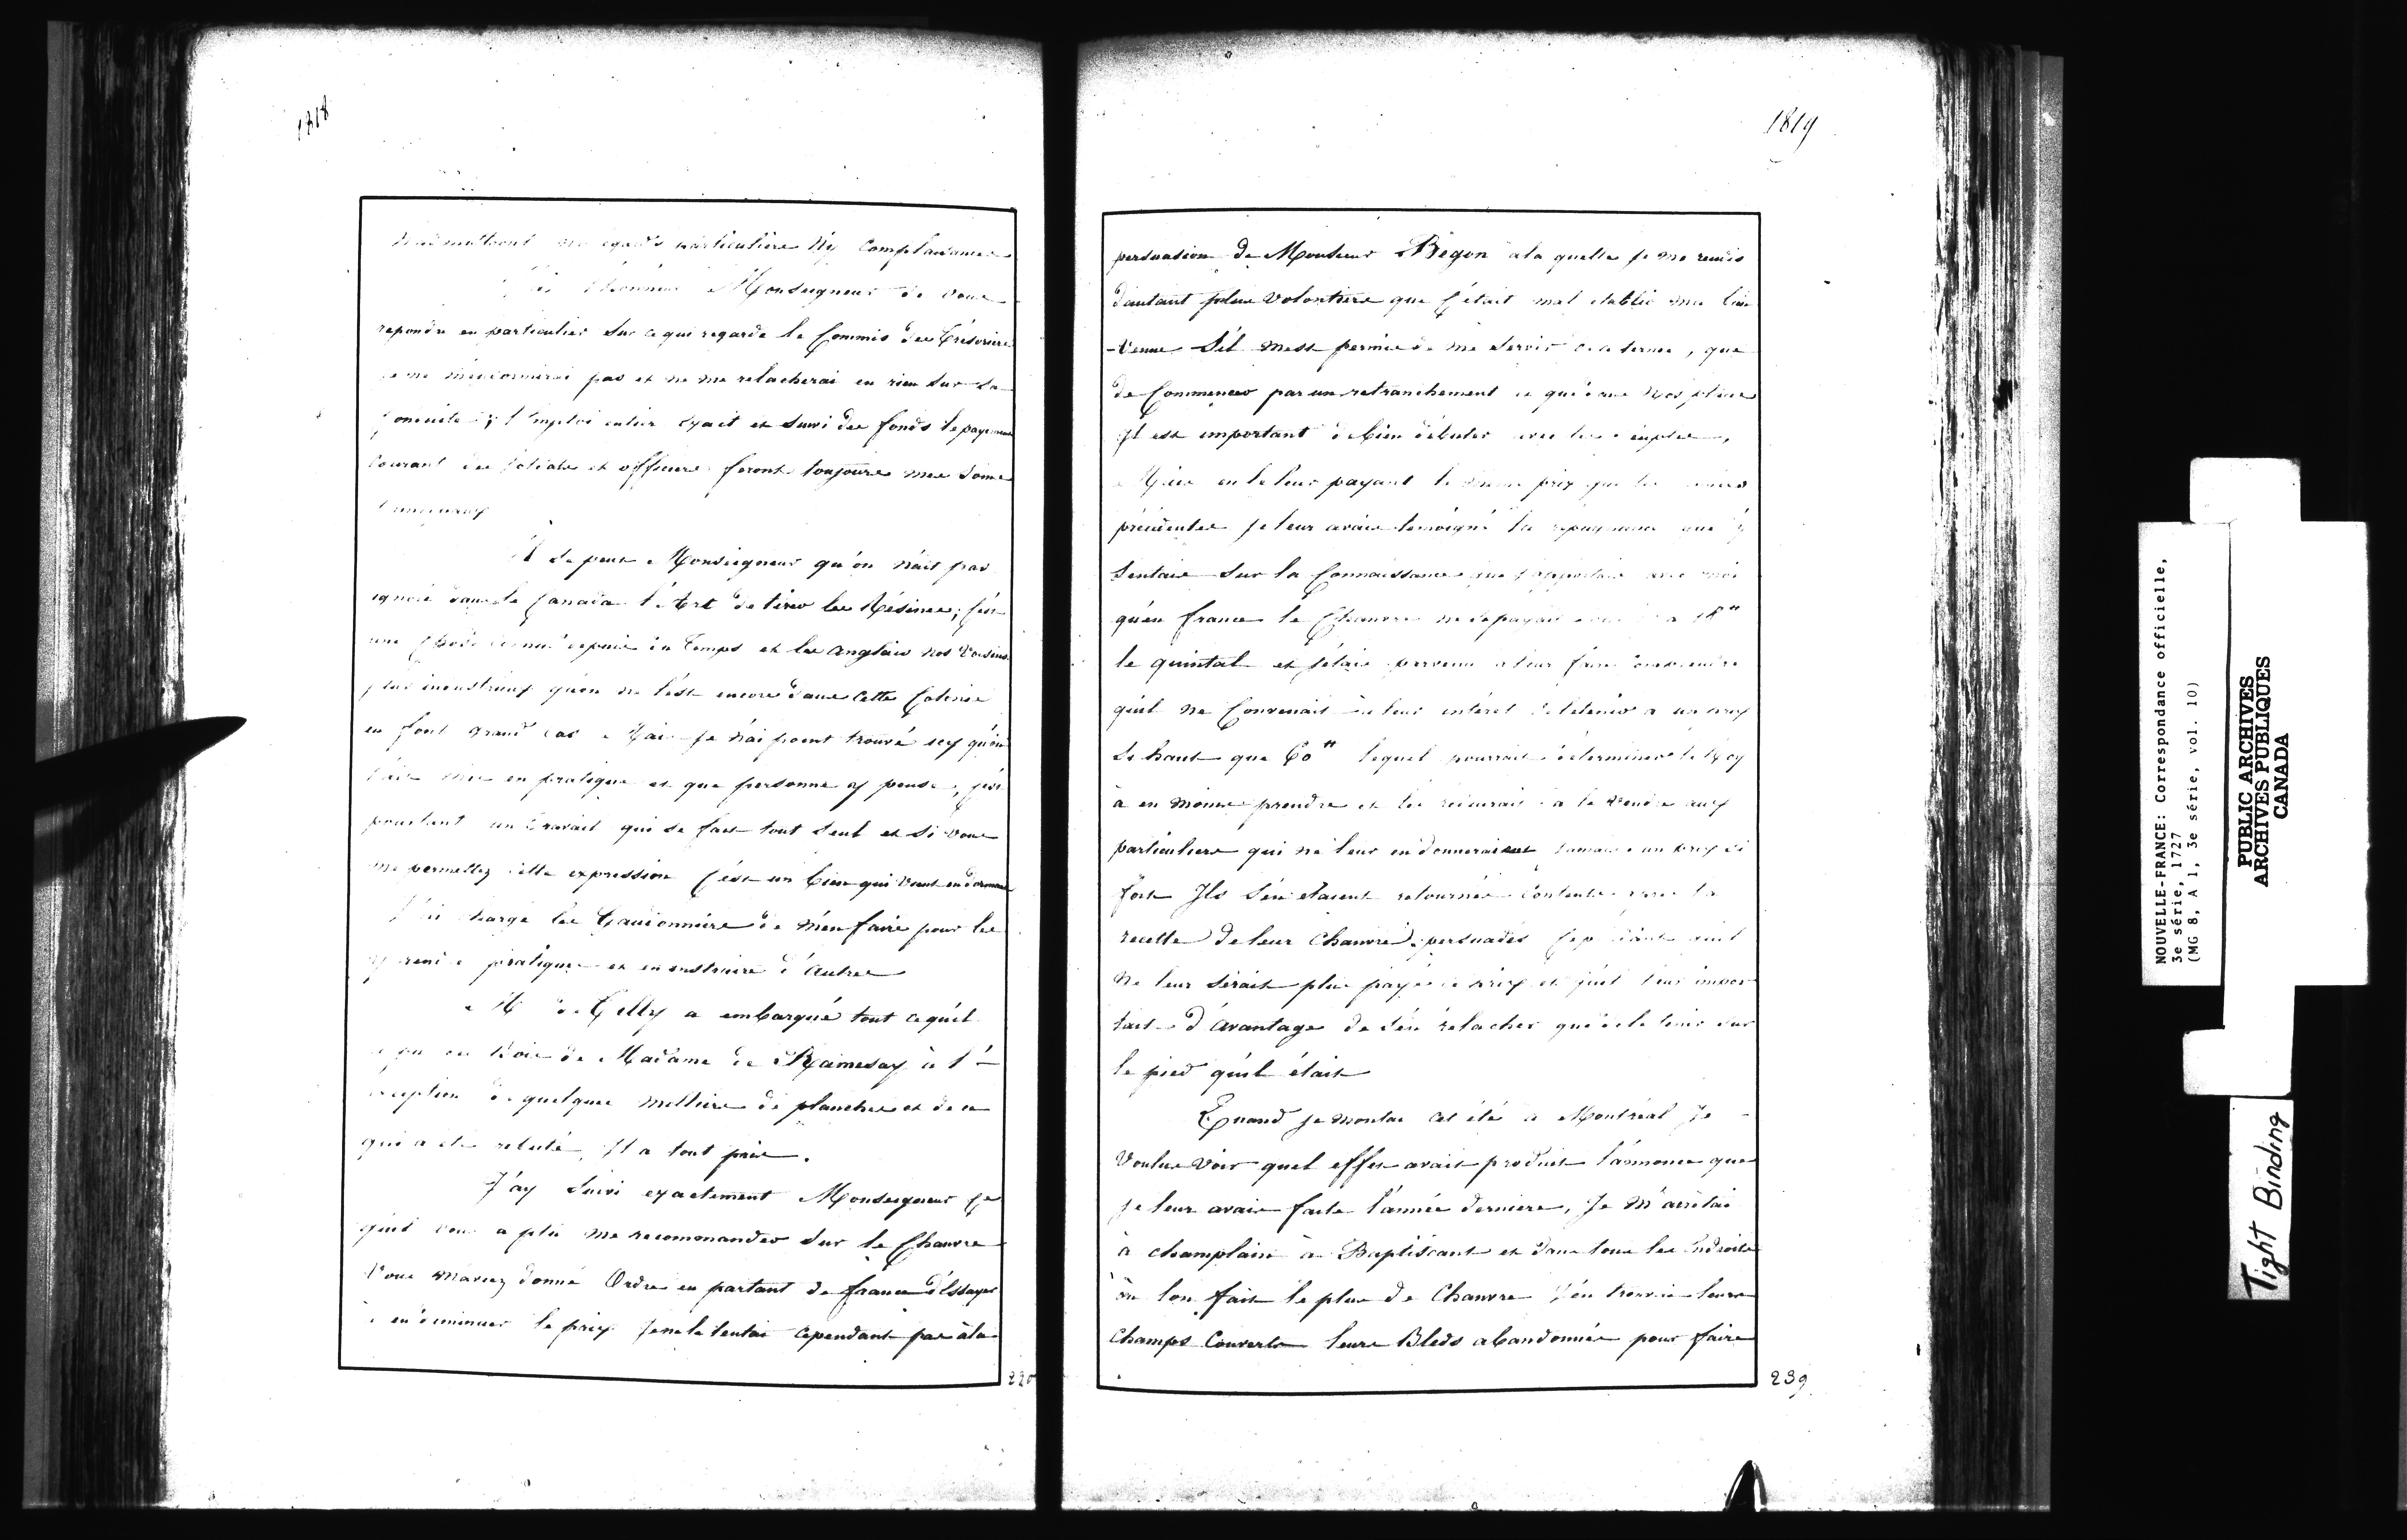 1818
égards particulière Ny Complaisance
l'honneur Monseigneur de vous
repondre en particulier sur ce qui regarde le Commis des Trésoriers
je ne pas et ne me relacherai en rien sur sa
Conduite ; l'emploi entier exact et suivi des fonds le payement
Courant des soldats et officiers feront toujours mes soins
Il se peut Monseigneur qu'on n'ait pas
ignoré dans le Canada l'Art de tirer les Résines, C'est
une Chose connue depuis du temps et les anglais nos Voisins
plus industrieux qu'on ne l'est encore dans cette Colonie
en font grand cas Mais je n'ai point trouvé icy qu'on
l'ait mis en pratique et que personne y pense, C'est
pourtant un travail qui se fait tout seul et si vous
me permettez cette expression C'est un bien qui vient en dormant
J'ai chargé les Gaudronniers de m'en faire pour les
pratique et en instruire d'Autres
M de Tilly a embarqué tout ce qu'il
a pu du Bois de Madame de Ramesay à l'-
exception de quelques milliers de planches et de ce
qui a été rebuté, Il a tout pris.
J'ay suivi exactement Monseigneur ce
qu'il vous a plû me recommander sur le Chanvre
Vous m'aviez donné Ordre en partant de france d'Essayer
à en diminuer le prix Je ne le tentai cependant pas à la
220
1819
persuasion de Monsieur Begon à la quelle je me rendis
d'autant plus volontiers que C'était mal etablir ma bien
-venue S'il m'est permis de me servir de ce terme, que
de Commencer par un retranchement
Il est important de bien débuter avec les peuples,
Mais en le leur payant le même prix que les années
précédentes je leur avais témoigné la repugnance que j'y
Sentais sur la Connaissance que j'apportais avec moi
qu'en france le Chanvre ne se payait
le quintal et j'étais parvenu à leur faire comprendre
qu'il ne Convenait à leur intérêt de le tenir à un prix
Si haut que 60<sup>tt</sup> lequel pourrait déterminer le Roy
à en moins prendre et les reduirait à le vendre aux
particuliers qui ne leur en donneraient jamais un prix si
fort Ils s'en etaient retournés Contents avec la
recette de leur Chanvre persuadés Cependant qu'il
ne leur serait plus payé ce prix et qu'il leur impor
tait d'Avantage de s'en relacher que de le tenir sur
le pied qu'il était
Quand je montai cet été à Montréal Je -
Voulus voir quel effet avait produit l'annonce que
je leur avais faite l'année derniere, Je M'arrêtai
à champlain à Baptiscant et dans tous les Endroits
où l'on fait le plus de Chanvre J'en trouvai leurs
champs Couverts leurs Bleds abandonnés pour faire
239
NOUVELLE-FRANCE: Correspondance officielle,
3e série, 1727
(MG 8, A 1, 3e série, vol. 10)
PUBLIC ARCHIVES
ARCHIVES PUBLIQUES
CANADA
Tight Binding